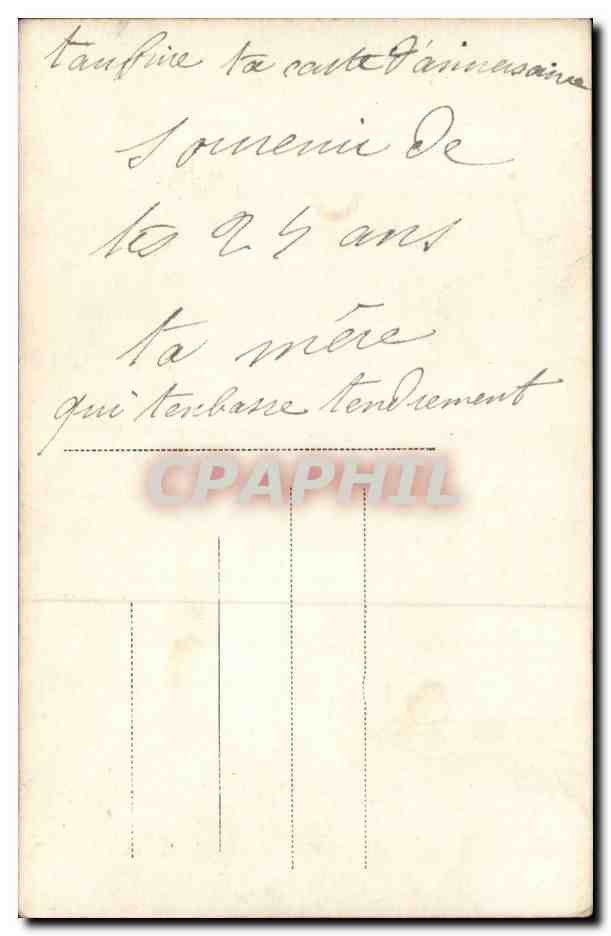 ta carte d'anniversaire
souvenir de
tes 24 ans
ta mère
qui tenbasse tendrement
CPAPHIL